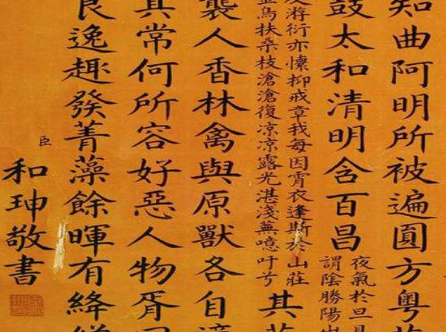 知曲阿明所被遍圓方粤
鼓太和清明含百昌
夜氣於旦
謂陰勝陽
及游衍亦懷抑戒章我每因宵衣逢斯於山莊
烏扶桑枝滄滄復凉凉露光湛淺蕪噫吁兮
其
襲人香林禽與原獸各自適
其常何所容好惡人物胥
良逸趣發菁藻餘暉有絳
臣和珅敬書